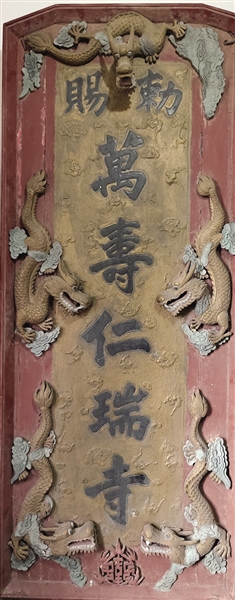 勅賜
萬壽仁瑞寺